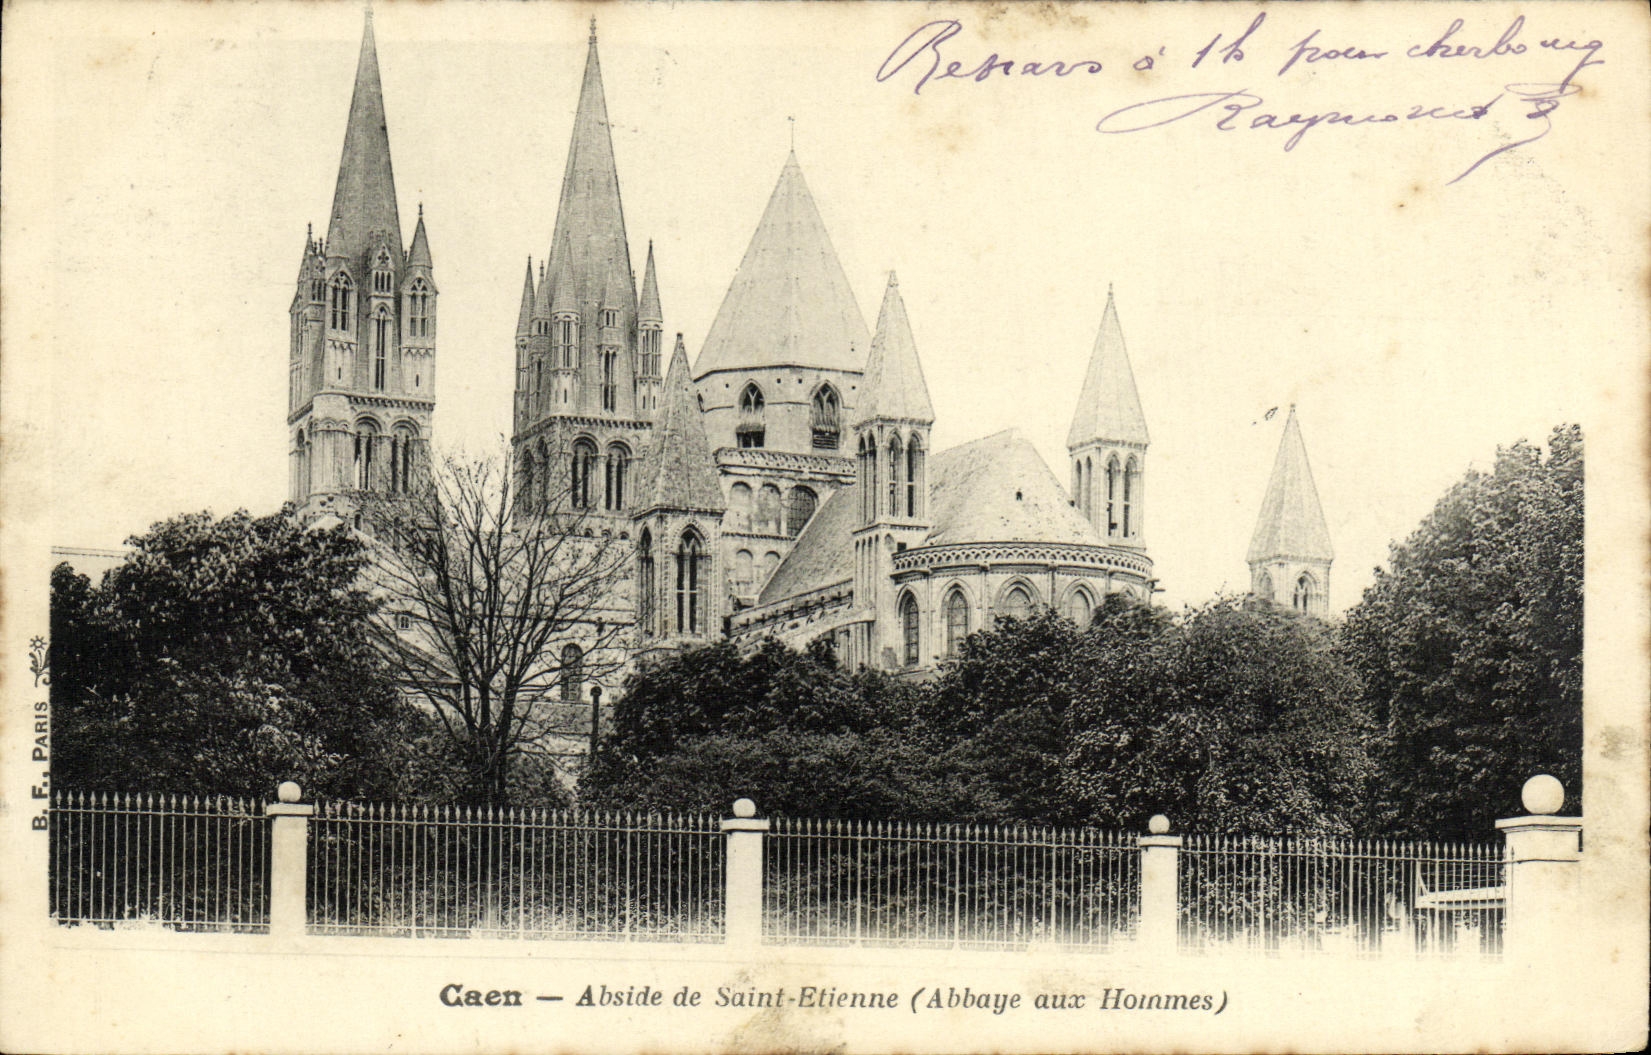 Repars à 1h pour cherbourg
Raymond
B. F., PARIS
Caen — Abside de Saint-Etienne (Abbaye aux Hommes)